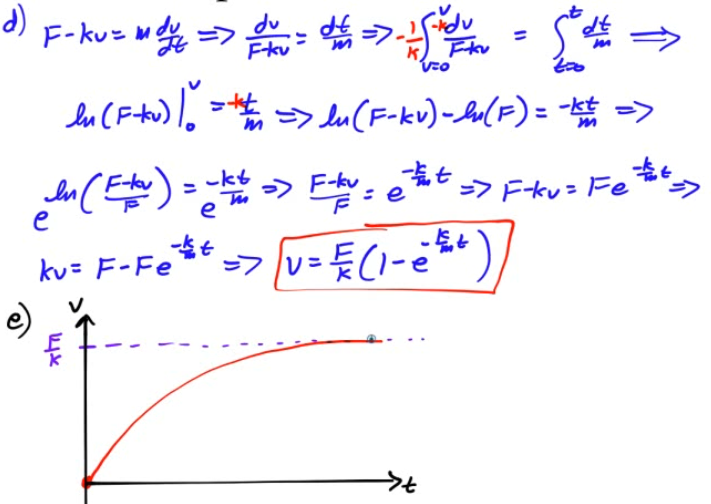 d) F-kv = m dv/dt => dv/(F-kv) = dt/m => -1/k ∫_{v=0}^{v} -k dv/(F-kv) = ∫_{t=0}^{t} dt/m =>
ln(F-kv)|_0^v = -kt/m => ln(F-kv)-ln(F) = -kt/m =>
e^{ln((F-kv)/F)} = e^{-kt/m} => (F-kv)/F = e^{-k/m t} => F-kv = Fe^{-k/m t} =>
kv = F-Fe^{-k/m t} => v = F/k (1-e^{-k/m t})
e) v
F/k
t